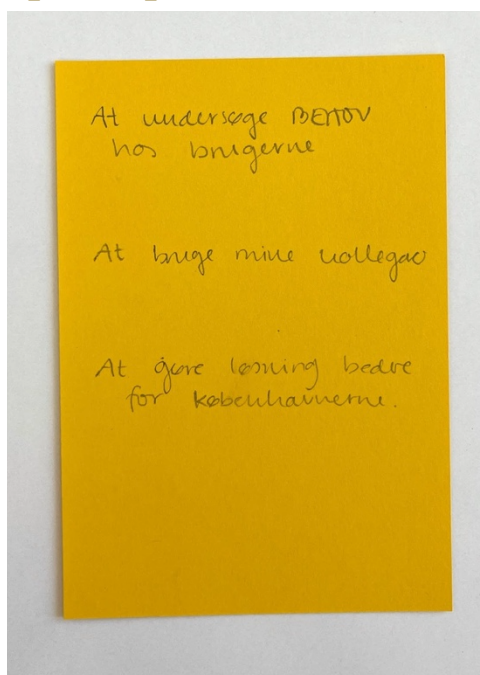 At undersøge BEHOV
hos brugerne
At bruge mine kollegaer
At gøre løsning bedre
for københavnerne.